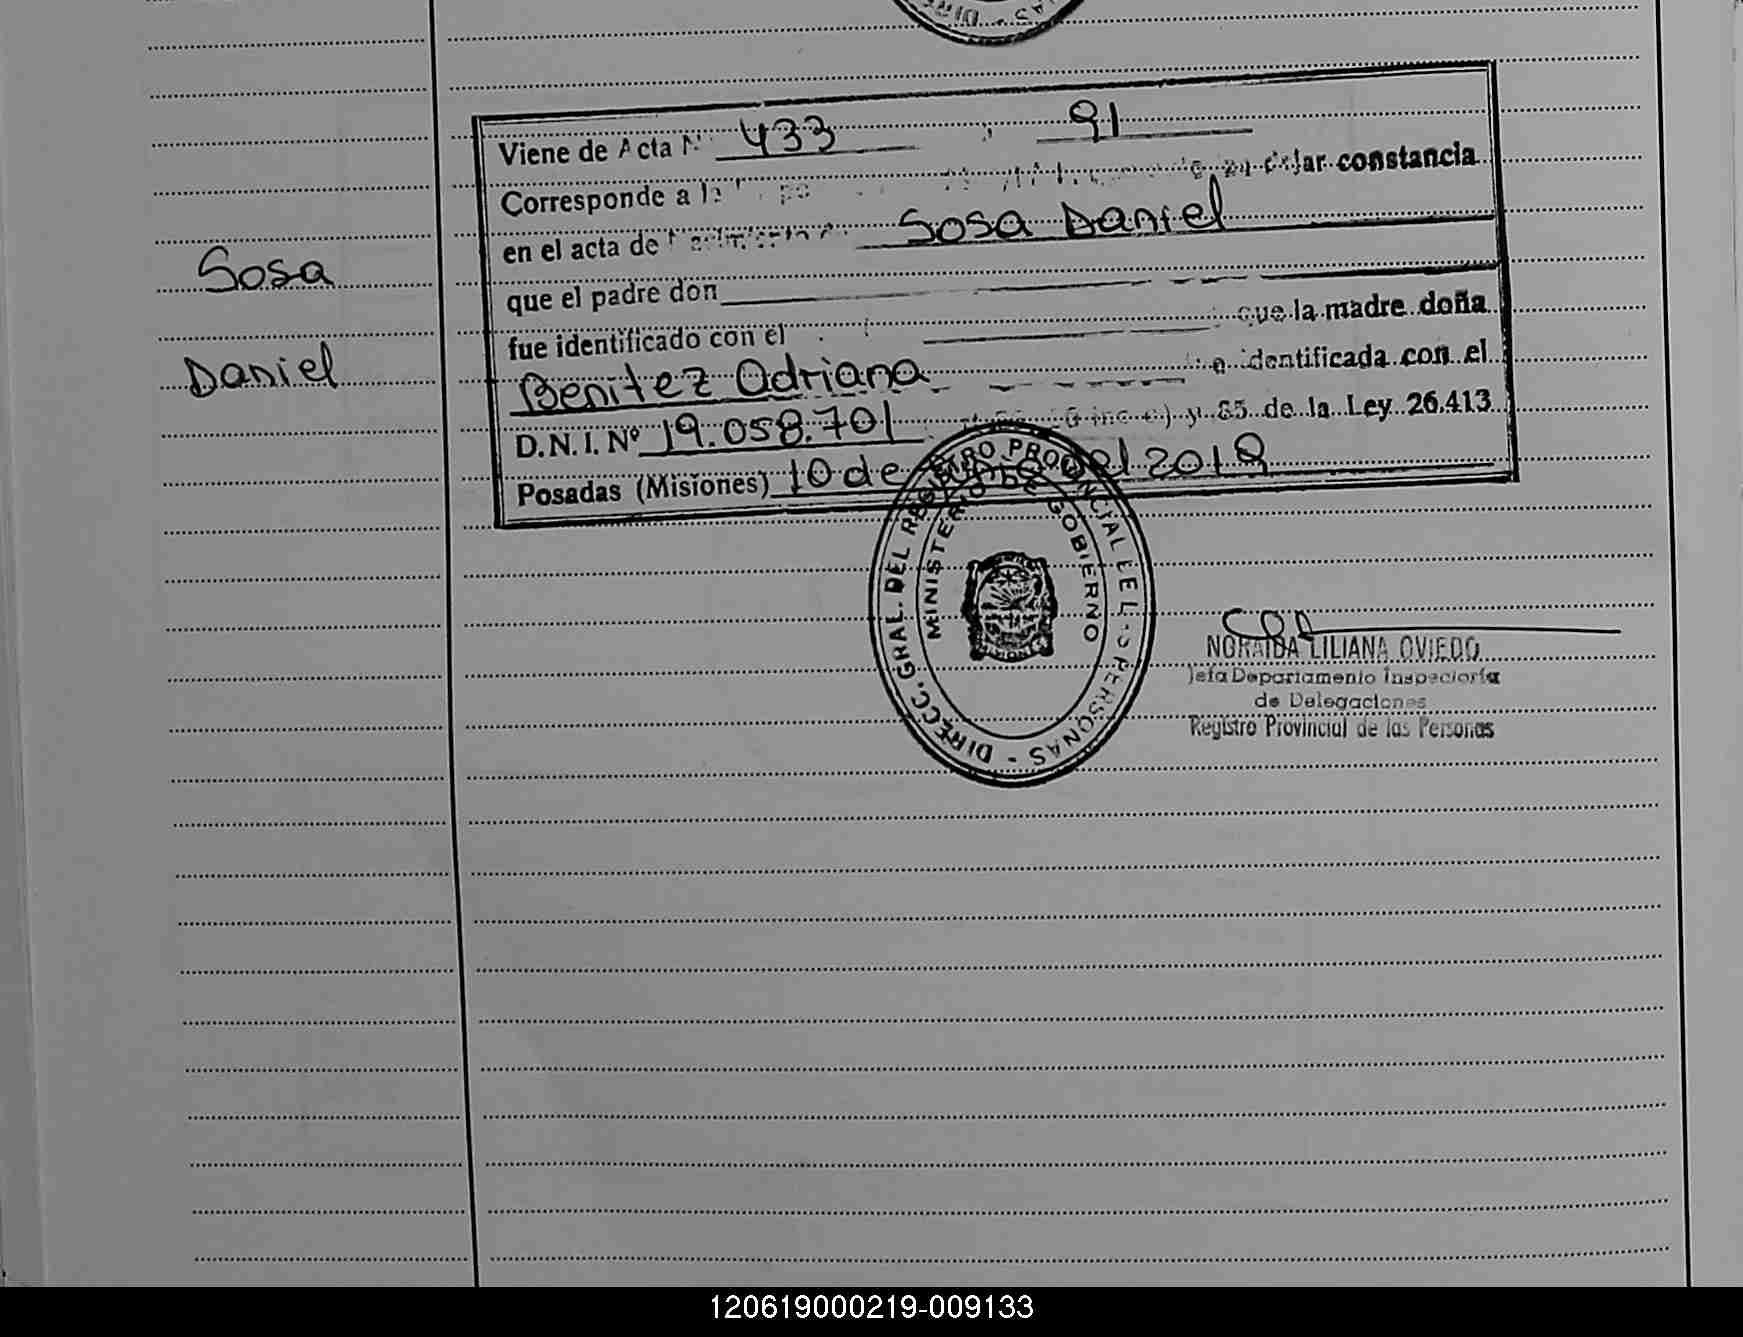 Viene de Acta N° 433 91
Corresponde a la dejar constancia
en el acta de Sosa Daniel
Sosa
que el padre don
fue identificado con el que la madre doña
Daniel
Benitez Adriana identificada con el
D.N.I. Nº 19.058.701 y 85 de la Ley 26.413
Posadas (Misiones) 10 de del 2019
DIRECC. GRAL. DEL REGISTRO PROVINCIAL DE LAS PERSONAS -
MINISTERIO DE GOBIERNO
NORAIDA LILIANA OVIEDO
Jefa Departamento Inspectoría
de Delegaciones
Registro Provincial de las Personas
120619000219-009133